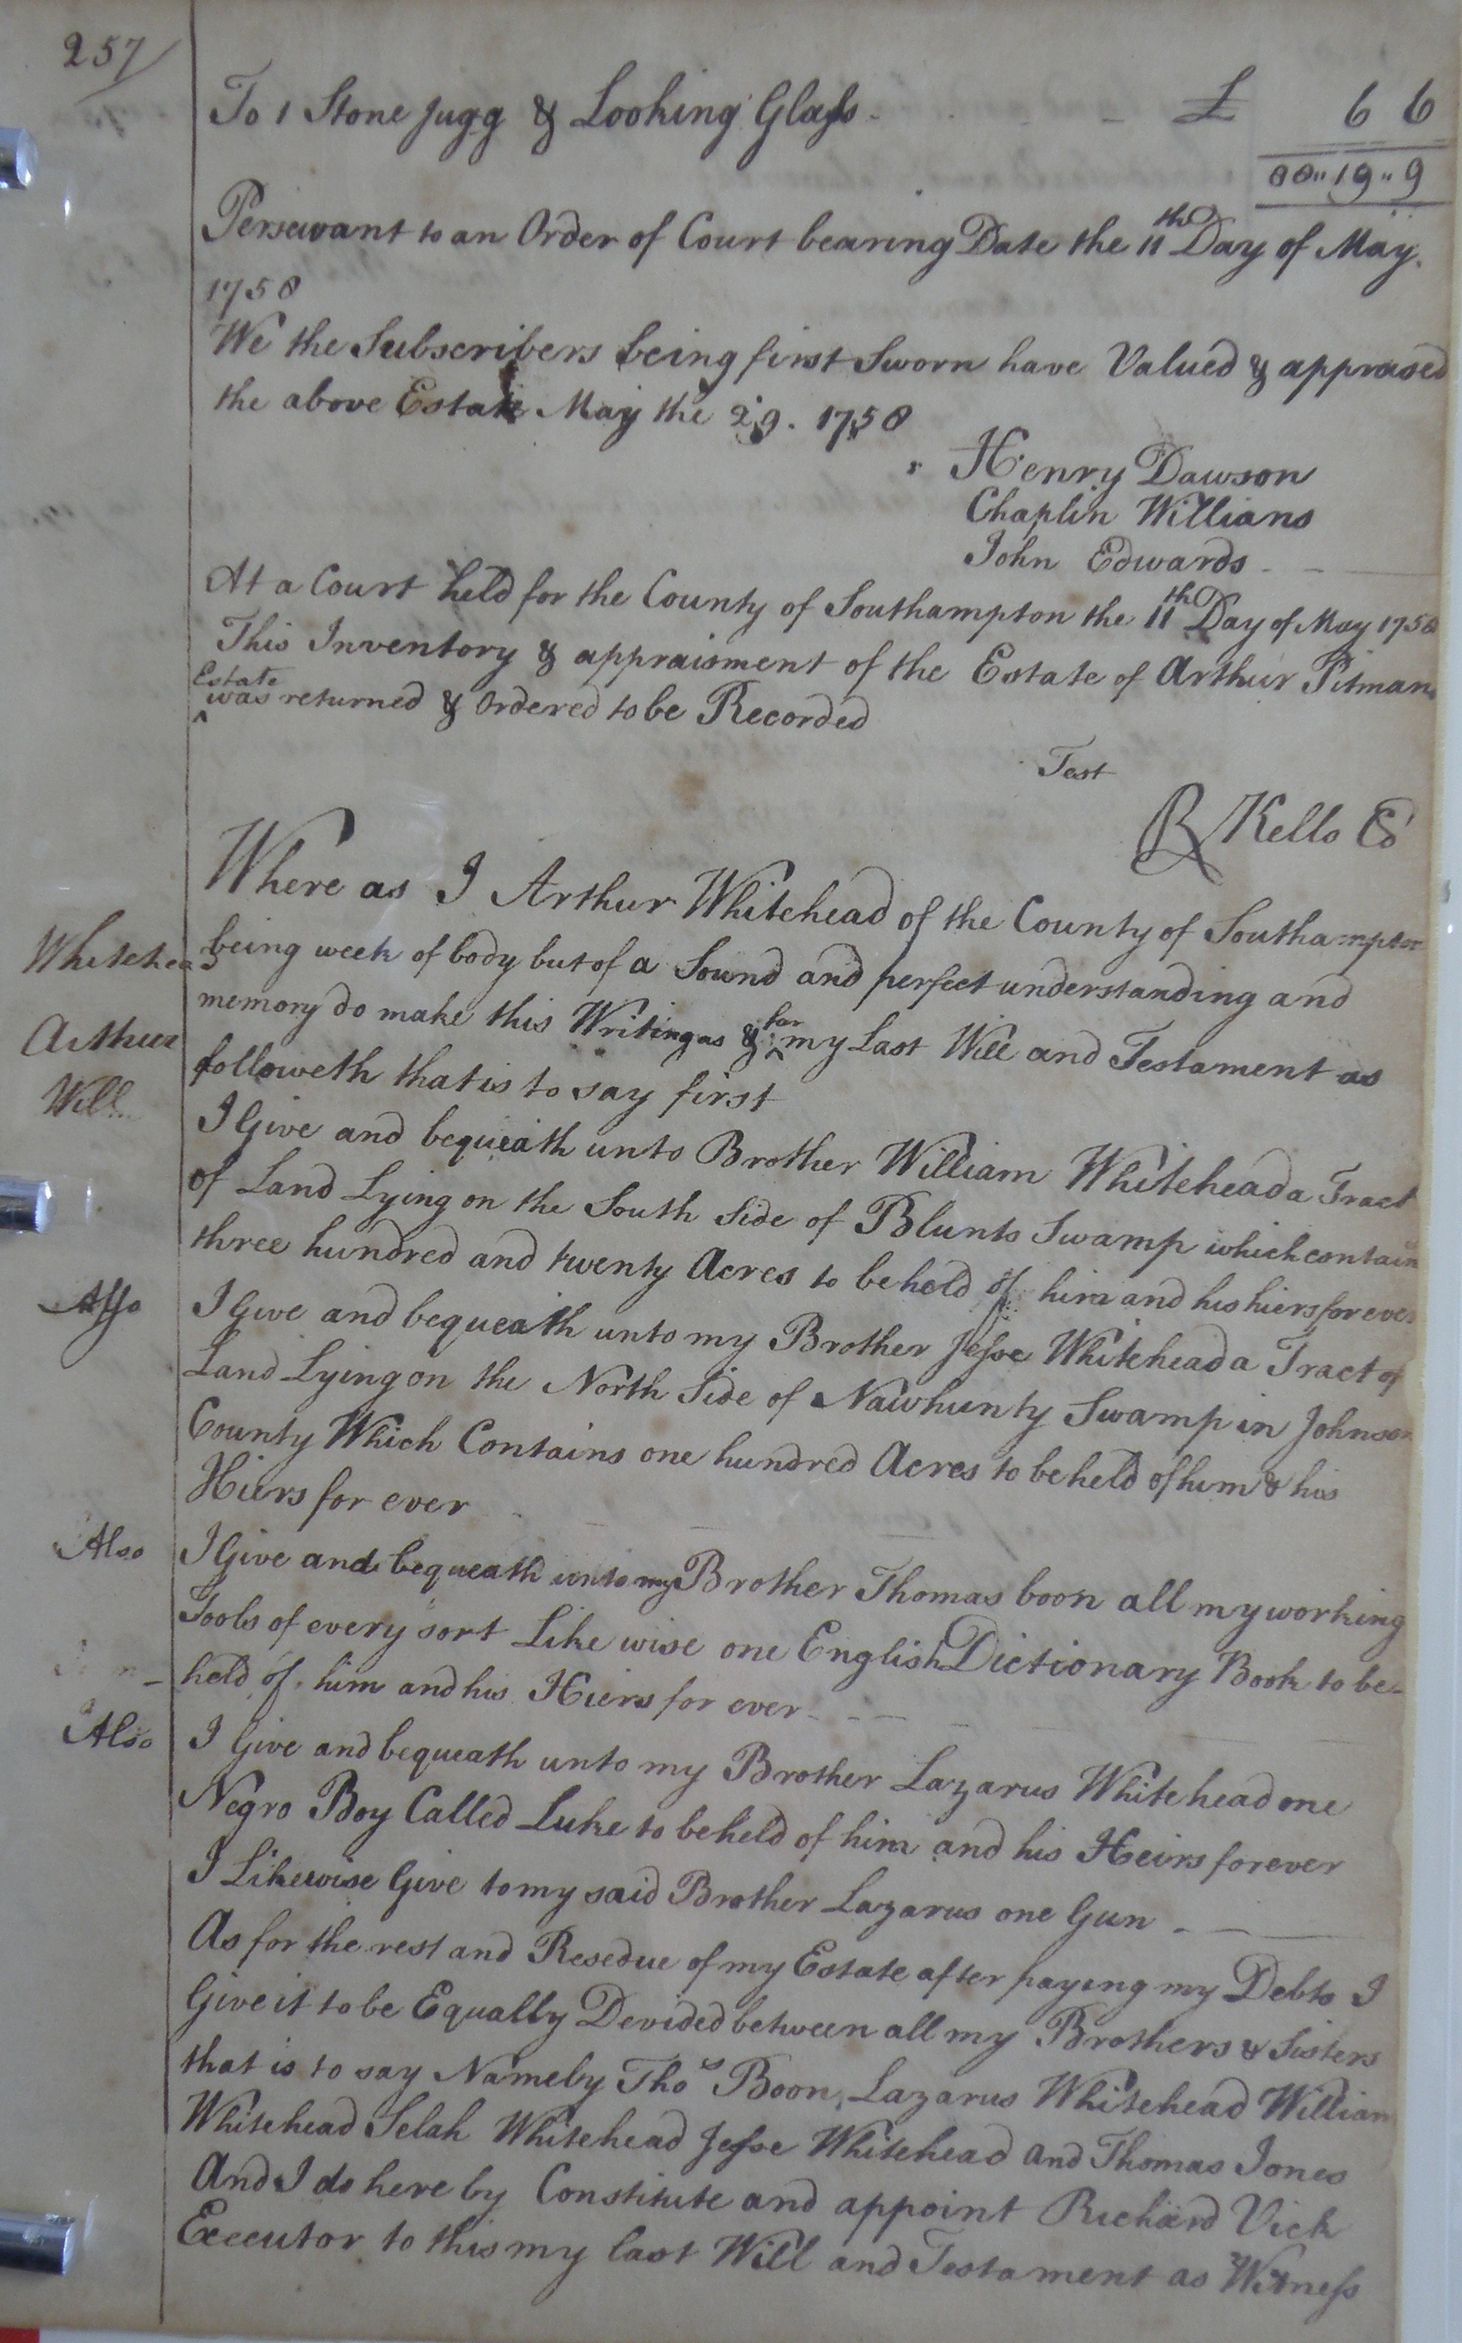 257
To 1 Stone Jugg & Looking Glass - £ 6 6
88" 19" 9
Persuvant to an Order of Court bearing Date the 11th Day of May
1758
We the Subscribers being first Sworn have Valued & appraised
the above Estate May the 29. 1758
Henry Dawson
Chaplin Willians
John Edwards
At a Court held for the County of Southampton the 11th Day of May 1758
This Inventory & appraisment of the Estate of Arthur Pitman
Estate
was returned & Ordered to be Recorded
Test
R Kello
Where as I Arthur Whitehead of the County of Southampton
Whitehead
being week of body but of a Sound and perfect understanding and
memory do make this Writing as & for my Last Will and Testament as
Arthur
followeth that is to say first
Will
I Give and bequeath unto Brother William Whitehead a Tract
of Land Lying on the South Side of Blunts Swamp which contain
three hundred and twenty Acres to be held of him and his hiers for ever
Also I Give and bequeath unto my Brother Jesse Whitehead a Tract of
Land Lying on the North Side of Nawhunty Swamp in Johnson
County Which Contains one hundred Acres to be held of him & his
Hiers for ever
Also I Give and bequeath unto my Brother Thomas boon all my working
Tools of every sort Like wise one English Dictionary Book to be
held of him and his Hiers for ever
Also I Give and bequeath unto my Brother Lazarus Whitehead one
Negro Boy Called Luke to be held of him and his Heirs forever
I Likewise Give to my said Brother Lazarus one Gun
As for the rest and Resedue of my Estate after paying my Debts I
Give it to be Equally Devided between all my Brothers & Sisters
that is to say Nameby Thos Boon, Lazarus Whitehead William
Whitehead Selah Whitehead Jesse Whitehead and Thomas Jones
And I do here by Constitute and appoint Richard Vick
Executor to this my last Will and Testament as Witness